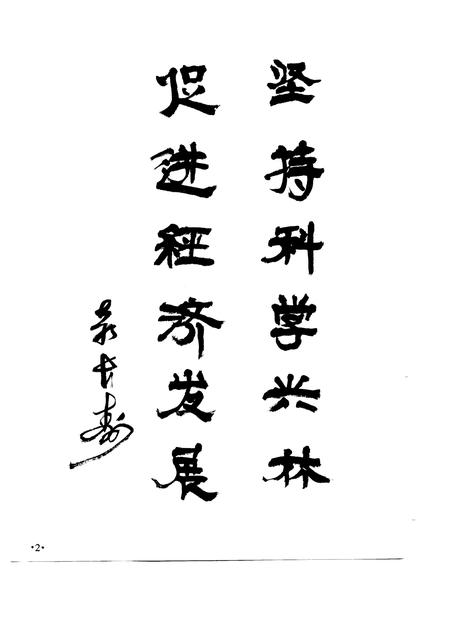 坚持科学兴林
促进经济发展
长寿
•2•